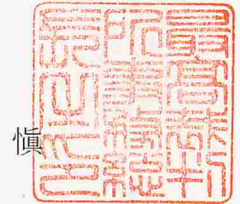 最高裁判
所事務總
長之印
愼